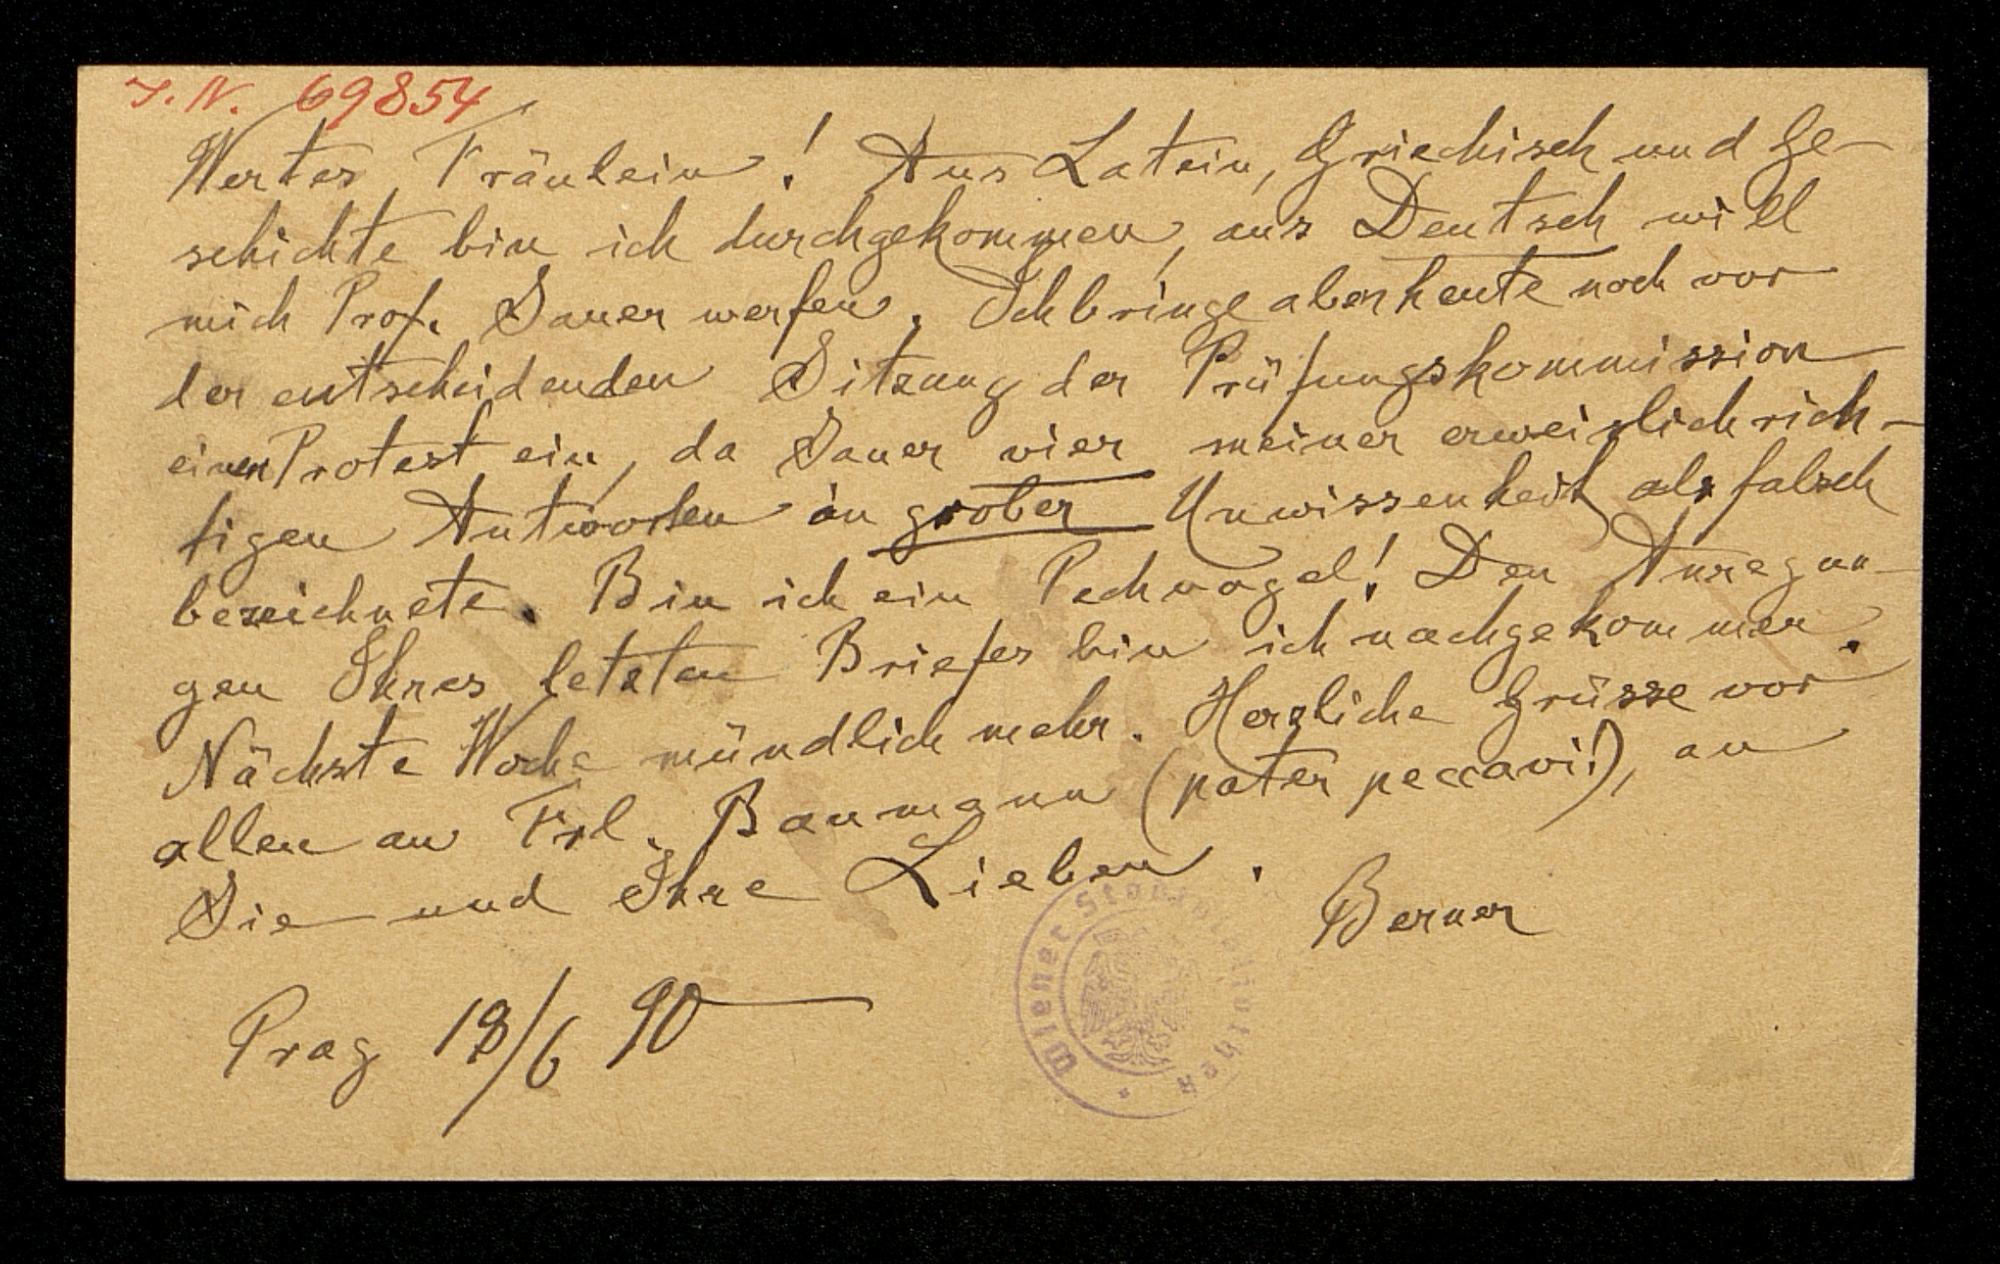 I. N. 69854
Wertes Fräulein! Aus Latein, Griechisch und Ge-
schichte bin ich durchgekommen, aus Deutsch will
mich Prof. Sauer werfen. Ich bringe aber heute noch vor
der entscheidenden Sitzung der Prüfungskommission
einen Protest ein, da Sauer vier meiner erweislich rich-
tigen Antworten in grober Unwissenheit als falsch
bezeichnete. Bin ich ein Pechvogel! Den Anregun-
gen Ihres letzten Briefes bin ich nachgekommen.
Nächste Woche mündlich mehr. Herzliche Grüsse vor
allen an Frl. Baumann (pater peccavi!), an
Sie und Ihre Lieben.
Berner
Prag 18/6 90
Wiener Stadtbibliothek